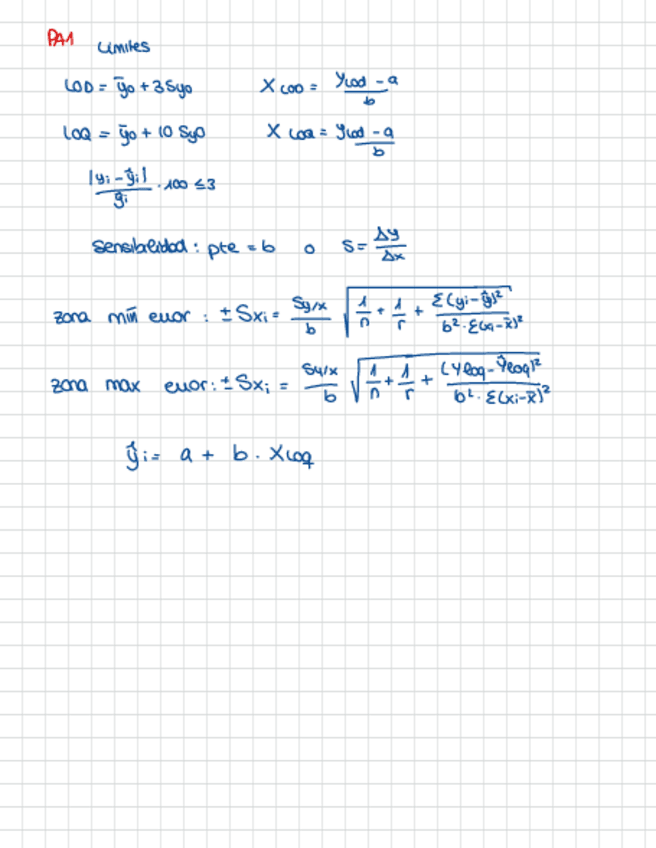 PA1 Límites
LOD = ȳ₀ + 3 Sy₀ X LOD = (yLOD - a) / b
LOQ = ȳ₀ + 10 Sy₀ X LOQ = (yLOD - a) / b
|yi - ŷi| / ŷi · 100 ≤ 3
Sensibilidad : pte = b o S = Δy / Δx
zona mín error : ± Sxi = Sy/x / b √(1/n + 1/r + Σ(yi - ŷ)² / b² · Σ(xi - x̄)²)
zona max error : ± Sxi = Sy/x / b √(1/n + 1/r + (yLOQ - ŷLOQ)² / b² · Σ(xi - x̄)²)
ŷi = a + b · XLOQ